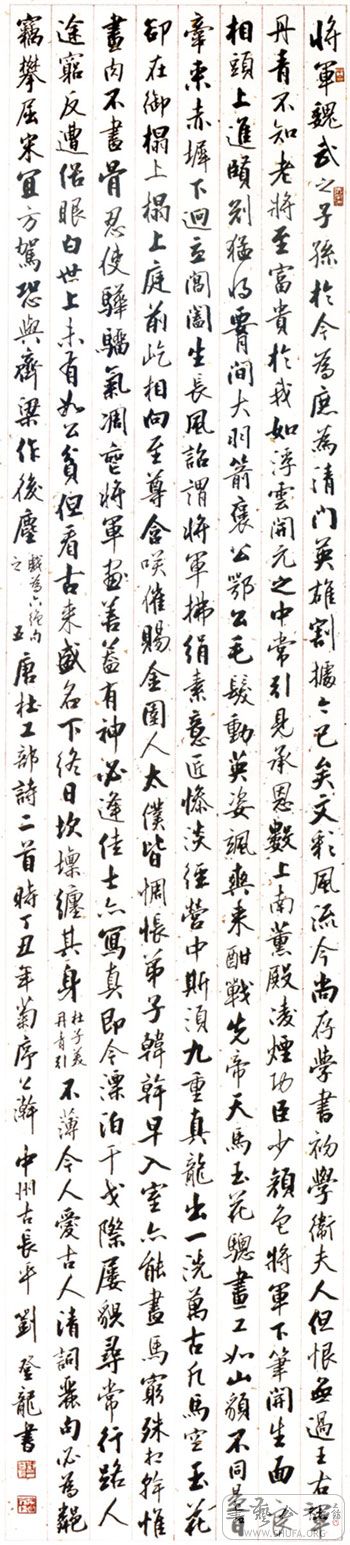 將軍魏武之子孫於今為庶為清門英雄割據今已矣文彩風流今尚存學書初學衛夫人但恨無過王右軍
丹青不知老將至富貴於我如浮雲開元之中常引見承恩數上南薰殿凌煙功臣少顏色將軍下筆開生面良
相頭上進賢冠猛將腰間大羽箭褒公鄂公毛髮動英姿颯爽來酣戰先帝天馬玉花驄畫工如山貌不同是日
牽來赤墀下迥立閶闔生長風詔謂將軍拂絹素意匠慘淡經營中斯須九重真龍出一洗萬古凡馬空玉花
卻在御榻上榻上庭前屹相向至尊含笑催賜金圉人太僕皆惆悵弟子韓幹早入室亦能畫馬窮殊相幹惟
畫肉不畫骨忍使驊騮氣凋喪將軍畫善蓋有神必逢佳士亦寫真即今漂泊干戈際屢貌尋常行路人
途窮反遭俗眼白世上未有如公貧但看古來盛名下終日坎壈纏其身杜子美丹青引不薄今人愛古人清詞麗句必為鄰
竊攀屈宋宜方駕恐與齊梁作後塵戲為六絕句之五唐杜工部詩二首時丁丑年菊序公澣中州古長平劉登龍書
WWW.CHUFA.ORG